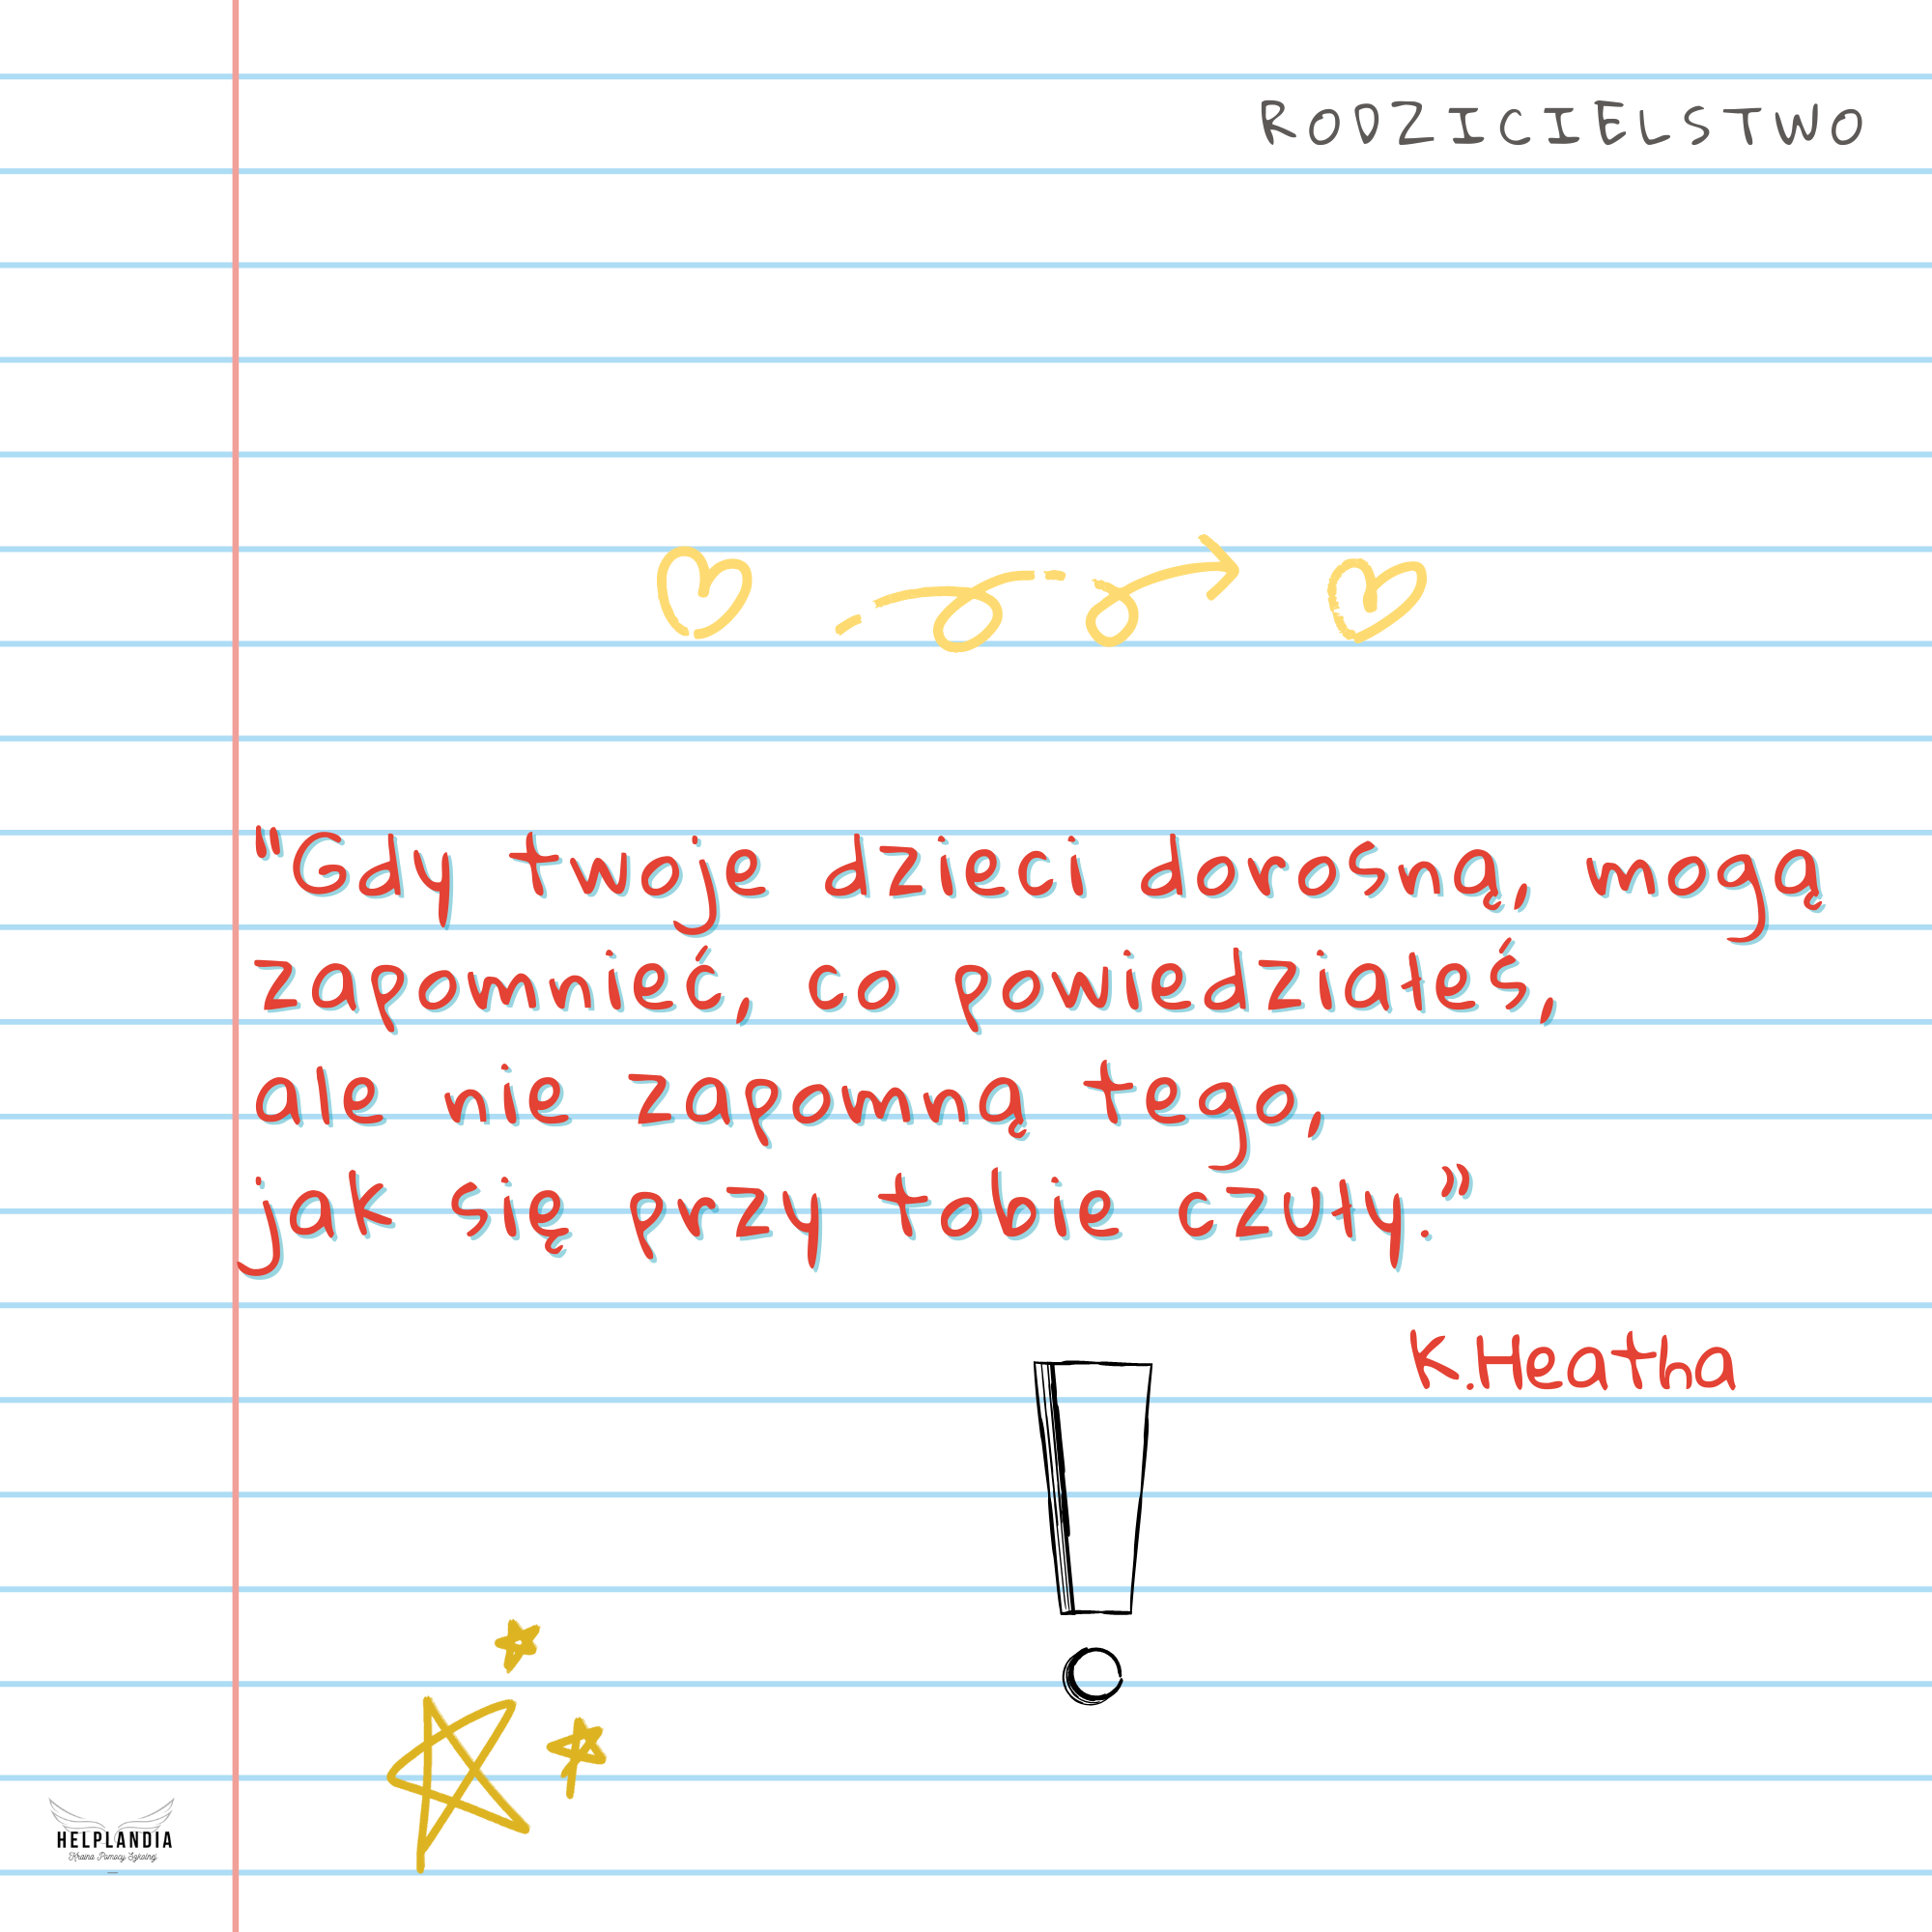 RODZICIELSTWO
"Gdy twoje dzieci dorosną, mogą
zapomnieć, co powiedziałeś,
ale nie zapomną tego,
jak się przy tobie czuły."
K.Heatha
!
HELPLANDIA
Kraina Pomocy Szkolnej